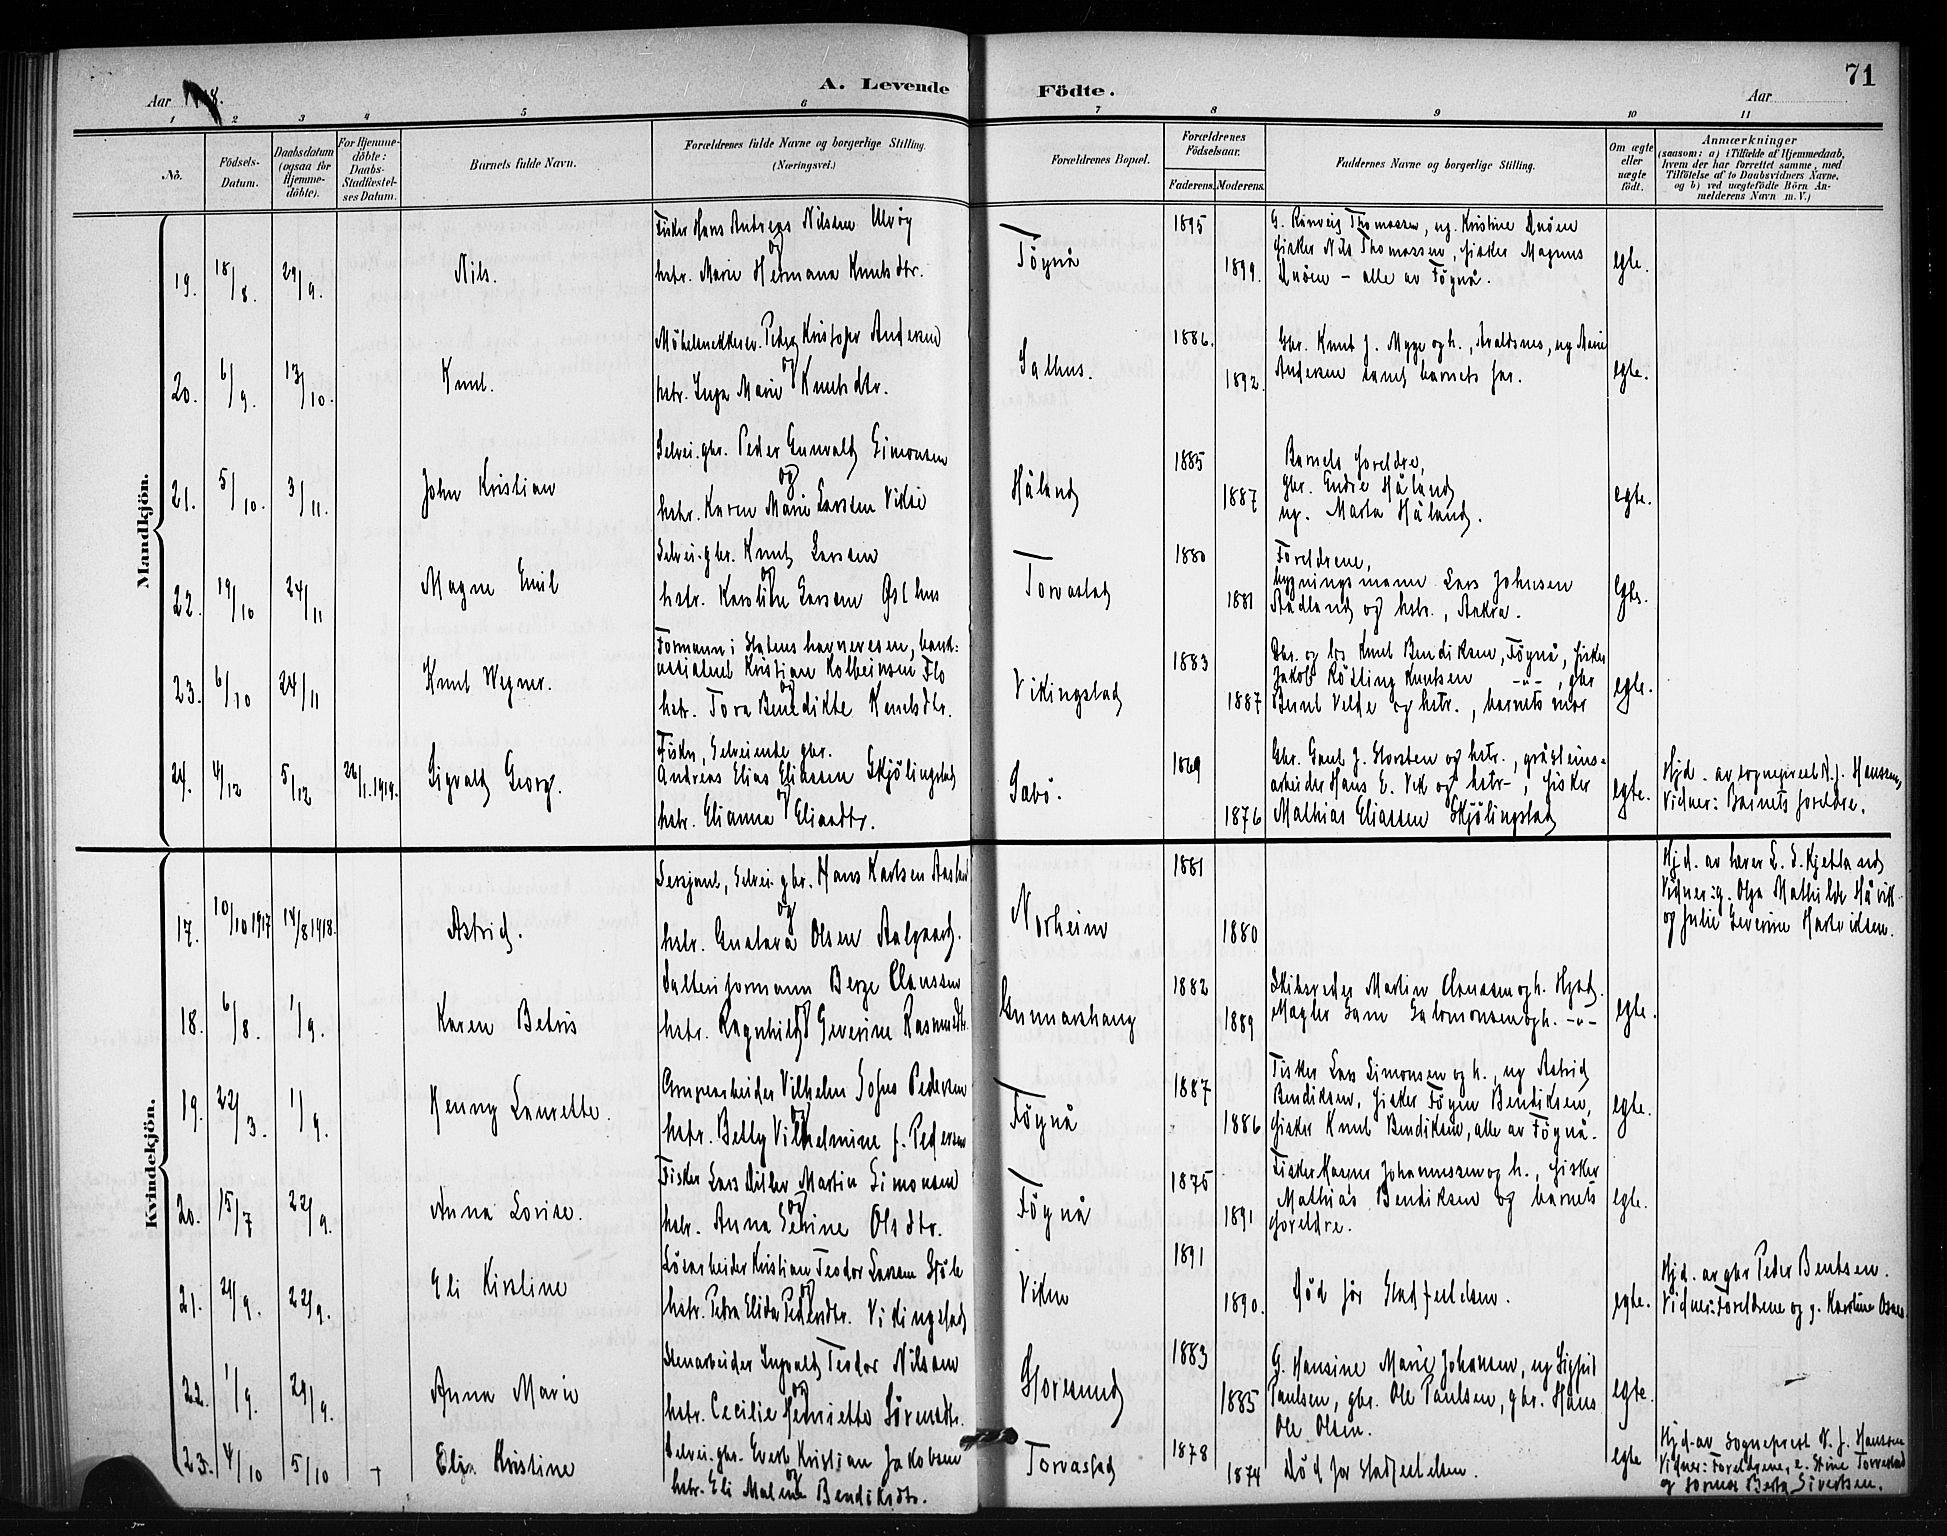 71
A. Levende Födte.
Aar 8.
Aar
1 2 3 4 5 6 7 8 9 10 11
No.
Födsels-Datum.
Daabsdatum (ogsaa for Hjemme-döbte).
For Hjemme-döbte: Daabs-Stadfæstel-ses Datum.
Barnets fulde Navn.
Forældrenes fulde Navne og borgerlige Stilling.
(Næringsvei.)
Forældrenes Bopæl.
Forældrenes Födselsaar.
Faderens. Moderens.
Faddernes Navne og borgerlige Stilling.
Om ægte eller uægte födt.
Anmærkninger
(saasom: a) i Tilfælde af Hjemmedaab,
hvem der har forrettet samme, med
Tilföielse af to Daabsvidners Navne,
og b) ved uægtefödte Börn An-
melderens Navn m. V.)
Mandkjön.
Fisker Hans Andreas Nilssen Ulvöy 1895 G. Rönveig Thomassen, ug. Kristine
19. 18/8. 29/9. Nils. og Föynå Fisker Nils Thomassen, fisker Magnus
hstr. Marie Hermana Knutsdtr. 1899. – alle av Föynå. egte.
Möbelsnekkersv. Peder Kristofer Andersen 1886. Gbr. Knut J. Myge og h., Avaldsnes, ug Marie
20. 6/9. 13/10. Knut. og Salhus. Andersen samt barnets far. egte.
hstr. Inga Marie Knutsdtr. 1892.
Selvei. gbr. Peder Gunvald Simonsen 1885 Barnets foreldre,
21. 5/10. 3/11. John Kristian og Håland gbr. Endre Håland
hstr. Karen Marie Larsen Vikse 1887 ug. Marta Håland. egte.
Selvei. gbr. Knut Larsen 1880 Foreldrene,
22. 19/10 24/11 Magne Emil og Torvastad bygningsmann Lars Johnsen
hstr. Karoline Larsen Østhus 1881 Aadland og hstr., Aakra. egte.
Formann i Statens havnevesen, band-
assistent Kristian Kolbeinsen Flo 1883 Gbr. og los Knut Bendiksen, Föynå, fisker
23. 6/10 24/11 Knut Wegner. og Vikingstad Jakob Rötling Knutsen –"–, gbr
hstr. Tora Benedikte Knutsdtr. 1887 Bernt Velde og hstr., barnets mor egte.
Fisker, Selveiende gbr. Gbr. J. Storsten og hstr., gråsteins-
24. 4/12 5/12 26/1.1919. Sigvald Georg. Andreas Elias Eliassen Skjölingstad Sævö. 1869 arbeider Hans E. Vik og hstr–, fisker
og
hstr. Elianna Eliasdtr. 1876 Mathias Eliassen Skjölingstad egte.
Hjd. av sogneprest N. J. Hanssen,
Vidner: Barnets foreldre.
Kvindekjön.
Sersjant, Selvei. gbr. Hans Karlsen 1881
17. 10/10 1917 14/8 1918. Astrid. og Norheim
hstr. Gustava Olsen Aalgaard. 1880
Hjd. av lærer L. S. Kjetland
Vidner: g. Olga Mathilde Håvik
og Julie Severine Henriksen.
Salteriformann Berge Clausen 1882 Skibsreder Martin Clausen og h. Hgsd.
18. 6/8. 1/9. Karen Betris og Gunnarshaug Megler Sam Salomonsen og h. –"–
hstr. Ragnhild Severine Rasmusdtr. 1889 egte.
Vilhelm Sofus Pedersen 1887 Fisker Lars Simonsen og h., ug Astrid
19. 22/3. 1/9. Henny Laurette. og Föynå Bendiksen, fisker Föyen Bendiksen,
hstr. Betty Vilhelmine f. Pedersen 1886 fisker Knut Bendiksen, alle av Föynå. egte.
Fisker Lars Martin Simonsen 1875 Fisker Johannessen og h., fisker
20. 15/7 22/9. Anna Lovise. og Föynå Mathias Bendiksen og barnets
hstr. Anna Serine Olsdtr. 1891 foreldre. egte.
Lösarbeider Kristian Teodor Larsen Störe 1891
21. 21/9. 22/9. Eli Kirstine og Viken Död för Stadfestelsen.
hstr. Petra Elida Pedersdtr. Vikingstad 1890. egte.
Hjd. av gbr Peder Bentsen.
Vidner: Foreldrene og g. Karoline Osnes
Stenarbeider Ingvald Teodor Nilsen 1883 G. Hansine Marie Johansen, ug Sigfrid
22. 1/9. 29/9. Anna Marie og Storesund Paulsen, gbr. Ole Paulsen, gbr. Hans
hstr. Cecilie Henriette Sörensdtr. 1885 Ole Olsen. egte.
23. 4/10 5/10 + Eli Kristine Selvei. gbr. Evert Kristian Jakobsen Torvastad 1878 Död för Stadfestelsen. egte
og
hstr. Eli Malene Bendiksdtr. 1874
Hjd. av Sogneprest N. J. Hanssen
Vidner: Foreldrene, e. Stine Torvestad
og jormor Berta Sivertsen.